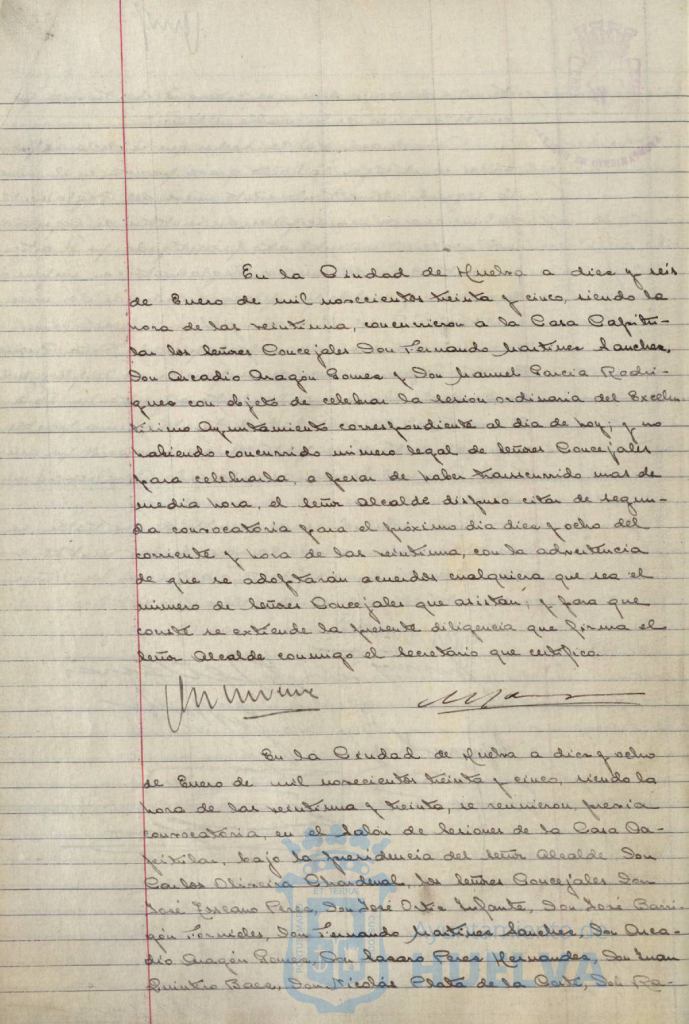 En la Ciudad de Huelva a diez y seis
de Enero de mil novecientos treinta y cinco, siendo la
hora de las veintiuna, concurrieron a la Casa Capitu-
lar los Señores Concejales Don Fernando Martinez Sanchez,
Don Arcadio Aragón Gomez y Don Manuel Garcia Rodri-
guez con objeto de celebrar la sesion ordinaria del Excelen-
tísimo Ayuntamiento correspondiente al dia de hoy; y no
habiendo concurrido número legal de Señores Concejales
para celebrarla, a pesar de haber transcurrido mas de
media hora, el Señor Alcalde dispuso citar de segun-
da convocatoria para el próximo dia diez y ocho del
corriente y hora de las veintiuna, con la advertencia
de que se adoptarán acuerdos cualquiera que sea el
número de Señores Concejales que asistan; y para que
conste se extiende la presente diligencia que firma el
Señor Alcalde conmigo el Secretario que certifico.
En la Ciudad de Huelva a diez y ocho
de Enero de mil novecientos treinta y cinco, siendo la
hora de las veintiuna y treinta, se reunieron, previa
convocatoria, en el Salón de Sesiones de la Casa Ca-
pitular, bajo la presidencia del Señor Alcalde Don
Carlos Oliveira Chardenal, los Señores Concejales Don
José Lescano Perez, Don José Ortiz Infante, Don José Barri-
gón Fornieles, Don Fernando Martinez Sanchez, Don Arca-
dio Aragón Gomez, Don Lazaro Perez Hernandez, Don Juan
Quintero Baez, Don Nicolás Plata de la Corte, Don Ra-
HUELVA